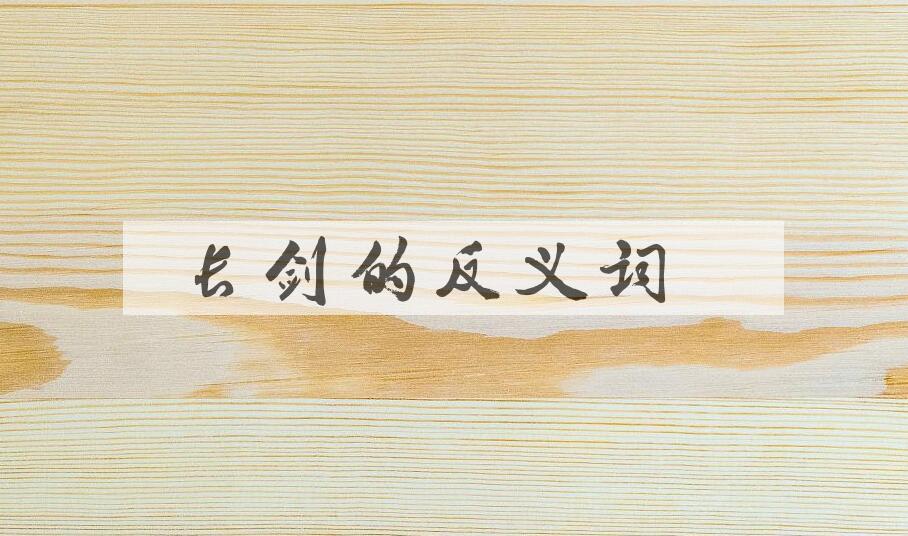 长剑的反义词